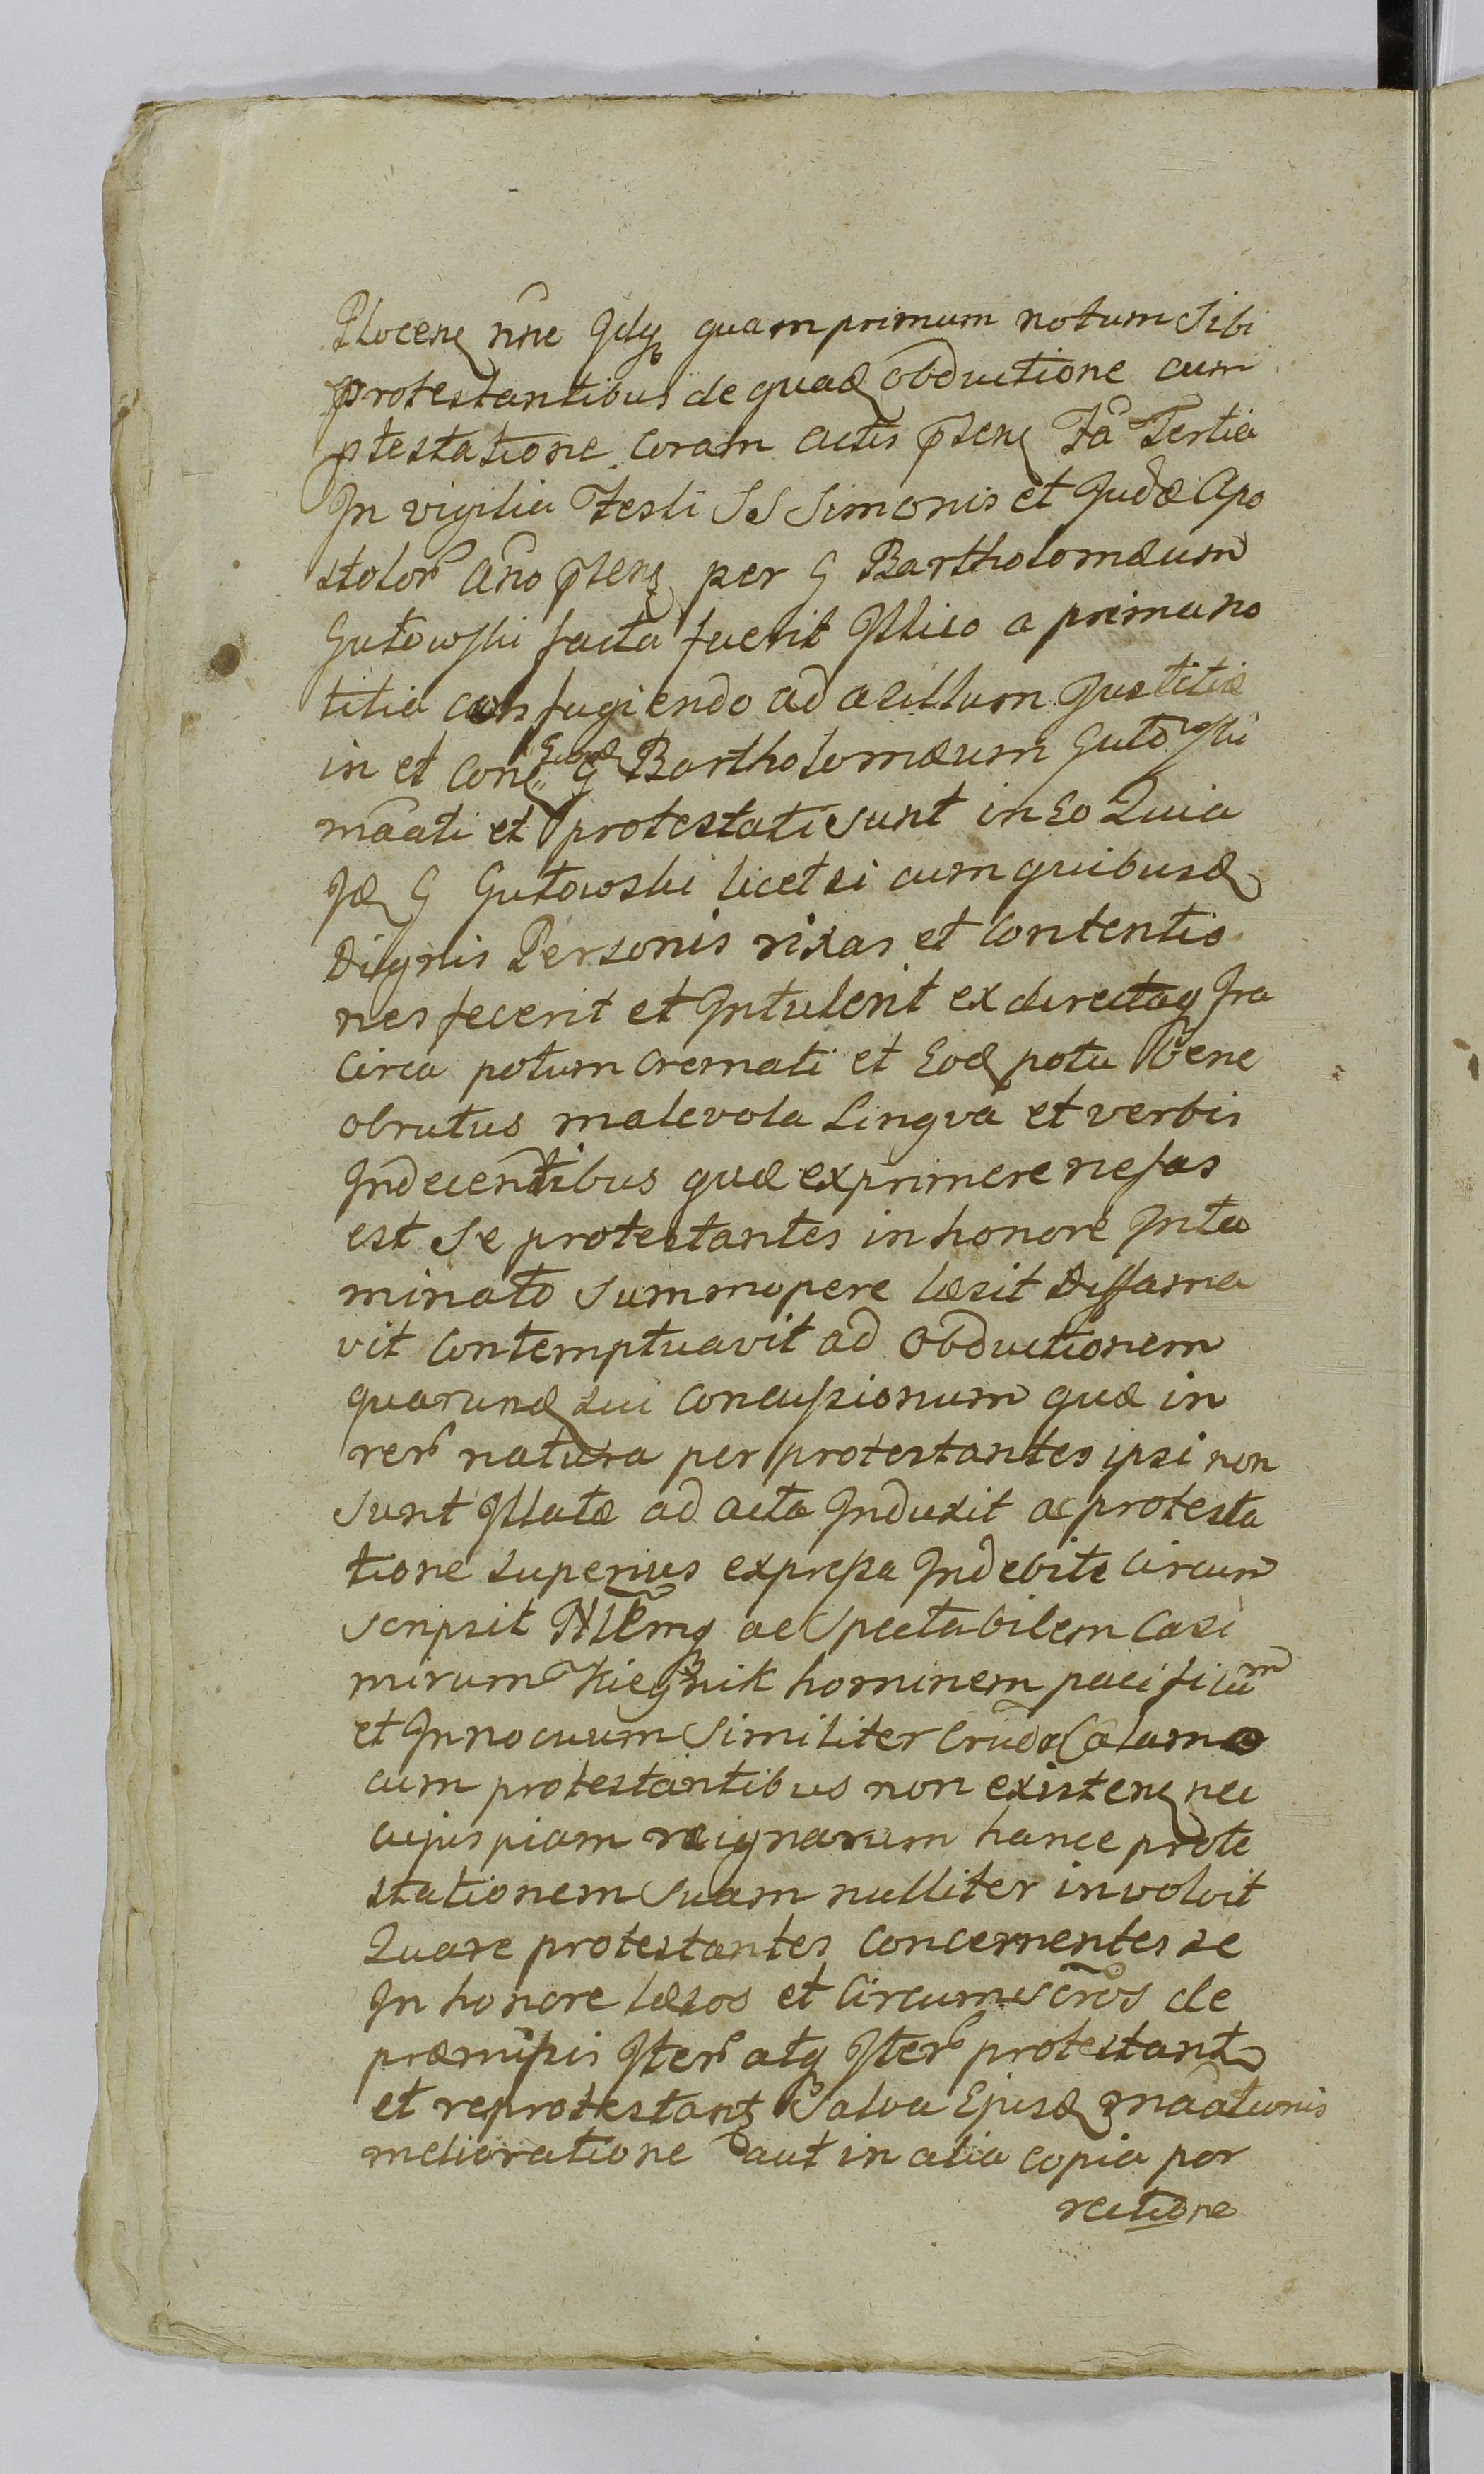 Plocen nne Idq quamprimum notum Sibi
protestantibus de quad obductione cum
ptestatione coram actis pnten Fa Tertia
In vigilia Festi SS Simonis et Judæ Apo
stolor Ano pnten per G Bartholomæum
Gutowski facta fuerit Illico a prima no
titia confugiendo ad asillum Justitiæ
in et con Eund G Bartholomæum Gutowski
maāti et protestati sunt in Eo Quia
Id G Gutowski licet si cum quibusd
Dignis Personis rixas et Contentio
nes fecerit et Intulerit ex directaq Ira
Circa potum Cremati et Eod potu bene
obrutus malevola Lingvâ et verbis
Indecentibus quæ exprimere nefas
est Se protestantes in honore Inta
minato Summopere læsit Diffama
vit Contemptuavit ad Obductionem
quarund sui Concussionum quæ in
rer natura per protestantes ipsi non
Sunt Illatæ ad acta Induxit ac protesta
tione superius expressa Indebite Circum
scripsit ac Spectabilem Casi
mirum hominem pacificum
et Innocuum Similiter Crudo Calamo
cum protestantibus non existen nec
cujuspiam rei gnarum hance prote
stationem Suam nulliter involvit
Quare protestantes Concernentes se
In honore læsos et Circumscros de
præmissis Iter atq Iter protestant
et reprotestant Salva Ejusd maātionis
melioratione aut in alia copia por
rectione